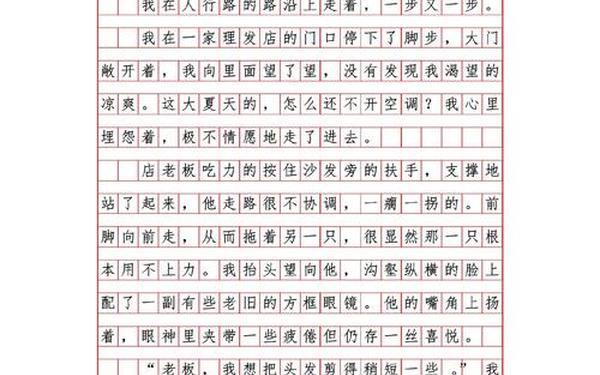 我在人行路的路沿上走着，一步又一步。
我在一家理发店的门口停下了脚步，大门
敞开着，我向里面望了望，没有发现我渴望的
凉爽。这大夏天的，怎么还不开空调？我心里
埋怨着，极不情愿地走了进去。
店老板吃力的按住沙发旁的扶手，支撑地
站了起来，他走路很不协调，一瘸一拐的。前
脚向前走，从而拖着另一只，很显然那一只根
本用不上力。我抬头望向他，沟壑纵横的脸上
配了一副有些老旧的方框眼镜。他的嘴角上扬
着，眼神里夹带一些疲倦但仍存一丝喜悦。
“老板，我想把头发剪得稍短一些。”我